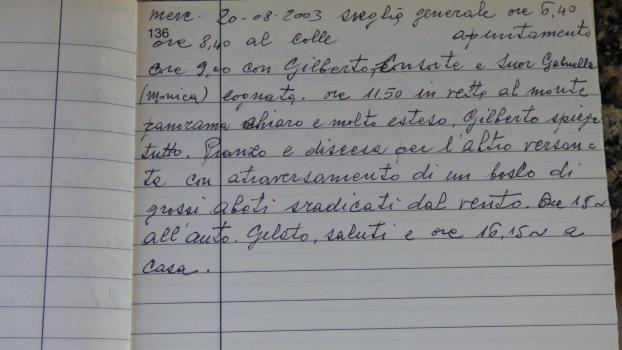 merc. 20-08-2003 sveglia generale ore 6,40
136
ore 8,40 al colle apuntamento
ore 9,00 con Gilberto, Consorte e Suor Gabriella
(monica) cognata. ore 11.50 in vetta al monte
panorama chiaro e molto esteso, Gilberto spiega
tutto. Pranzo e discesa per l'altro versan-
te con atraversamento di un bosco di
grossi abeti sradicati dal vento. Ore 15 ~
all'auto. Gelato, saluti e ore 16,15 ~ a
casa.